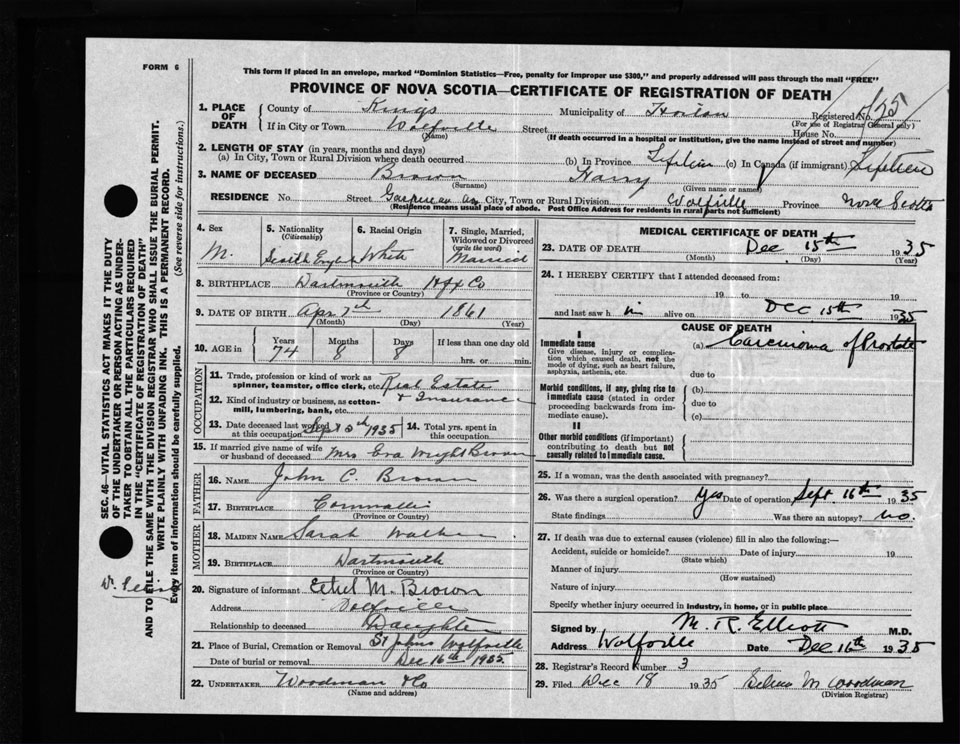 FORM 6
This form if placed in an envelope, marked "Dominion Statistics—Free, penalty for improper use $300," and properly addressed will pass through the mail "FREE"
PROVINCE OF NOVA SCOTIA—CERTIFICATE OF REGISTRATION OF DEATH
1. PLACE OF DEATH
County of Kings Municipality of Horton Registered No. 125
(For use of Registrar General only)
If in City or Town Wolfville Street House No.
(Name) (If death occurred in a hospital or institution, give the name instead of street and number)
2. LENGTH OF STAY (in years, months and days)
(a) In City, Town or Rural Division where death occurred (b) In Province Lifetime (c) In Canada (if immigrant) Lifetime
3. NAME OF DECEASED Brown Harry
(Surname) (Given name or names)
RESIDENCE No. Street Gaspereau av City, Town or Rural Division Wolfville Province Nova Scotia
(Residence means usual place of abode. Post Office Address for residents in rural parts not sufficient)
4. Sex
M.
5. Nationality
(Citizenship)
6. Racial Origin
White
7. Single, Married, Widowed or Divorced
(write the word)
Married
8. BIRTHPLACE Dartmouth Hfx Co
(Province or Country)
9. DATE OF BIRTH Apr 7th 1861
(Month) (Day) (Year)
10. AGE in
Years 74
Months 8
Days 8
If less than one day old
hrs. or min.
OCCUPATION
11. Trade, profession or kind of work as spinner, teamster, office clerk, etc. Real Estate
12. Kind of industry or business, as cotton-mill, lumbering, bank, etc. & Insurance
13. Date deceased last worked at this occupation Sept 1935
14. Total yrs. spent in this occupation
15. If married give name of wife or husband of deceased Mrs Eva Wright Brown
FATHER
16. Name John C. Brown
17. Birthplace Cornwallis
(Province or Country)
MOTHER
18. Maiden Name Sarah Walker
19. Birthplace Dartmouth
(Province or Country)
20. Signature of informant Ethel M. Brown
Address Wolfville
Relationship to deceased Daughter
21. Place of Burial, Cremation or Removal St Johns Wolfville
Date of burial or removal Dec 16th 1935
22. UNDERTAKER Woodman & Co
(Name and address)
MEDICAL CERTIFICATE OF DEATH
23. DATE OF DEATH Dec 15th 1935
(Month) (Day) (Year)
24. I HEREBY CERTIFY that I attended deceased from:
19 to 19
and last saw h im alive on Dec 15th 1935
CAUSE OF DEATH
I
Immediate cause (a) Carcinoma of Prostate
Give disease, injury or complication which caused death, not the mode of dying, such as heart failure, asphyxia, asthenia, etc.
due to
Morbid conditions, if any, giving rise to immediate cause (stated in order proceeding backwards from immediate cause).
(b)
due to
(c)
II
Other morbid conditions (if important) contributing to death but not causally related to immediate cause.
25. If a woman, was the death associated with pregnancy?
26. Was there a surgical operation? Yes Date of operation Sept 16th 1935
State findings Was there an autopsy? no.
27. If death was due to external causes (violence) fill in also the following:—
Accident, suicide or homicide? Date of injury 19
(State which)
Manner of injury
(How sustained)
Nature of injury
Specify whether injury occurred in industry, in home, or in public place
Signed by M. R. Elliott M.D.
Address Wolfville Date Dec 16th 1935
28. Registrar's Record Number 3
29. Filed Dec 18 1935 Selma M Woodman
(Division Registrar)
SEC. 46—VITAL STATISTICS ACT MAKES IT THE DUTY
OF THE UNDERTAKER OR PERSON ACTING AS UNDER-
TAKER TO OBTAIN ALL THE PARTICULARS REQUIRED
IN THE "CERTIFICATE OF REGISTRATION OF DEATH"
AND TO FILE THE SAME WITH THE DIVISION REGISTRAR WHO SHALL ISSUE THE BURIAL PERMIT.
WRITE PLAINLY WITH UNFADING INK. THIS IS A PERMANENT RECORD.
Every item of information should be carefully supplied. (See reverse side for instructions.)